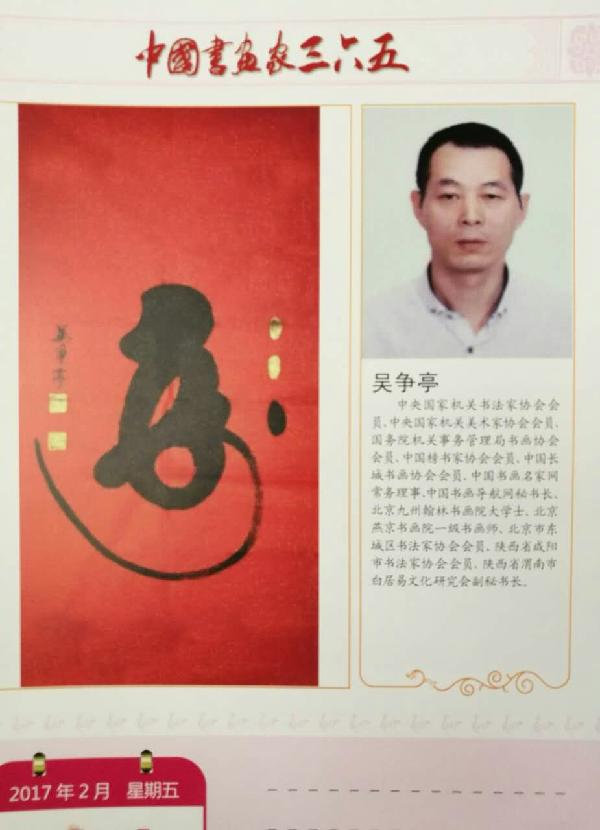 中國書畫家三六五
吴争亭
吴争亭
中央国家机关书法家协会会
员、中央国家机关美术家协会会员、
国务院机关事务管理局书画协会
会员、中国榜书家协会会员、中国长
城书画协会会员、中国书画名家网
常务理事、中国书画导航网秘书长、
北京九州翰林书画院大学士、北京
燕京书画院一级书画师、北京市东
城区书法家协会会员、陕西省咸阳
市书法家协会会员、陕西省渭南市
白居易文化研究会副秘书长。
2017年2月 星期五